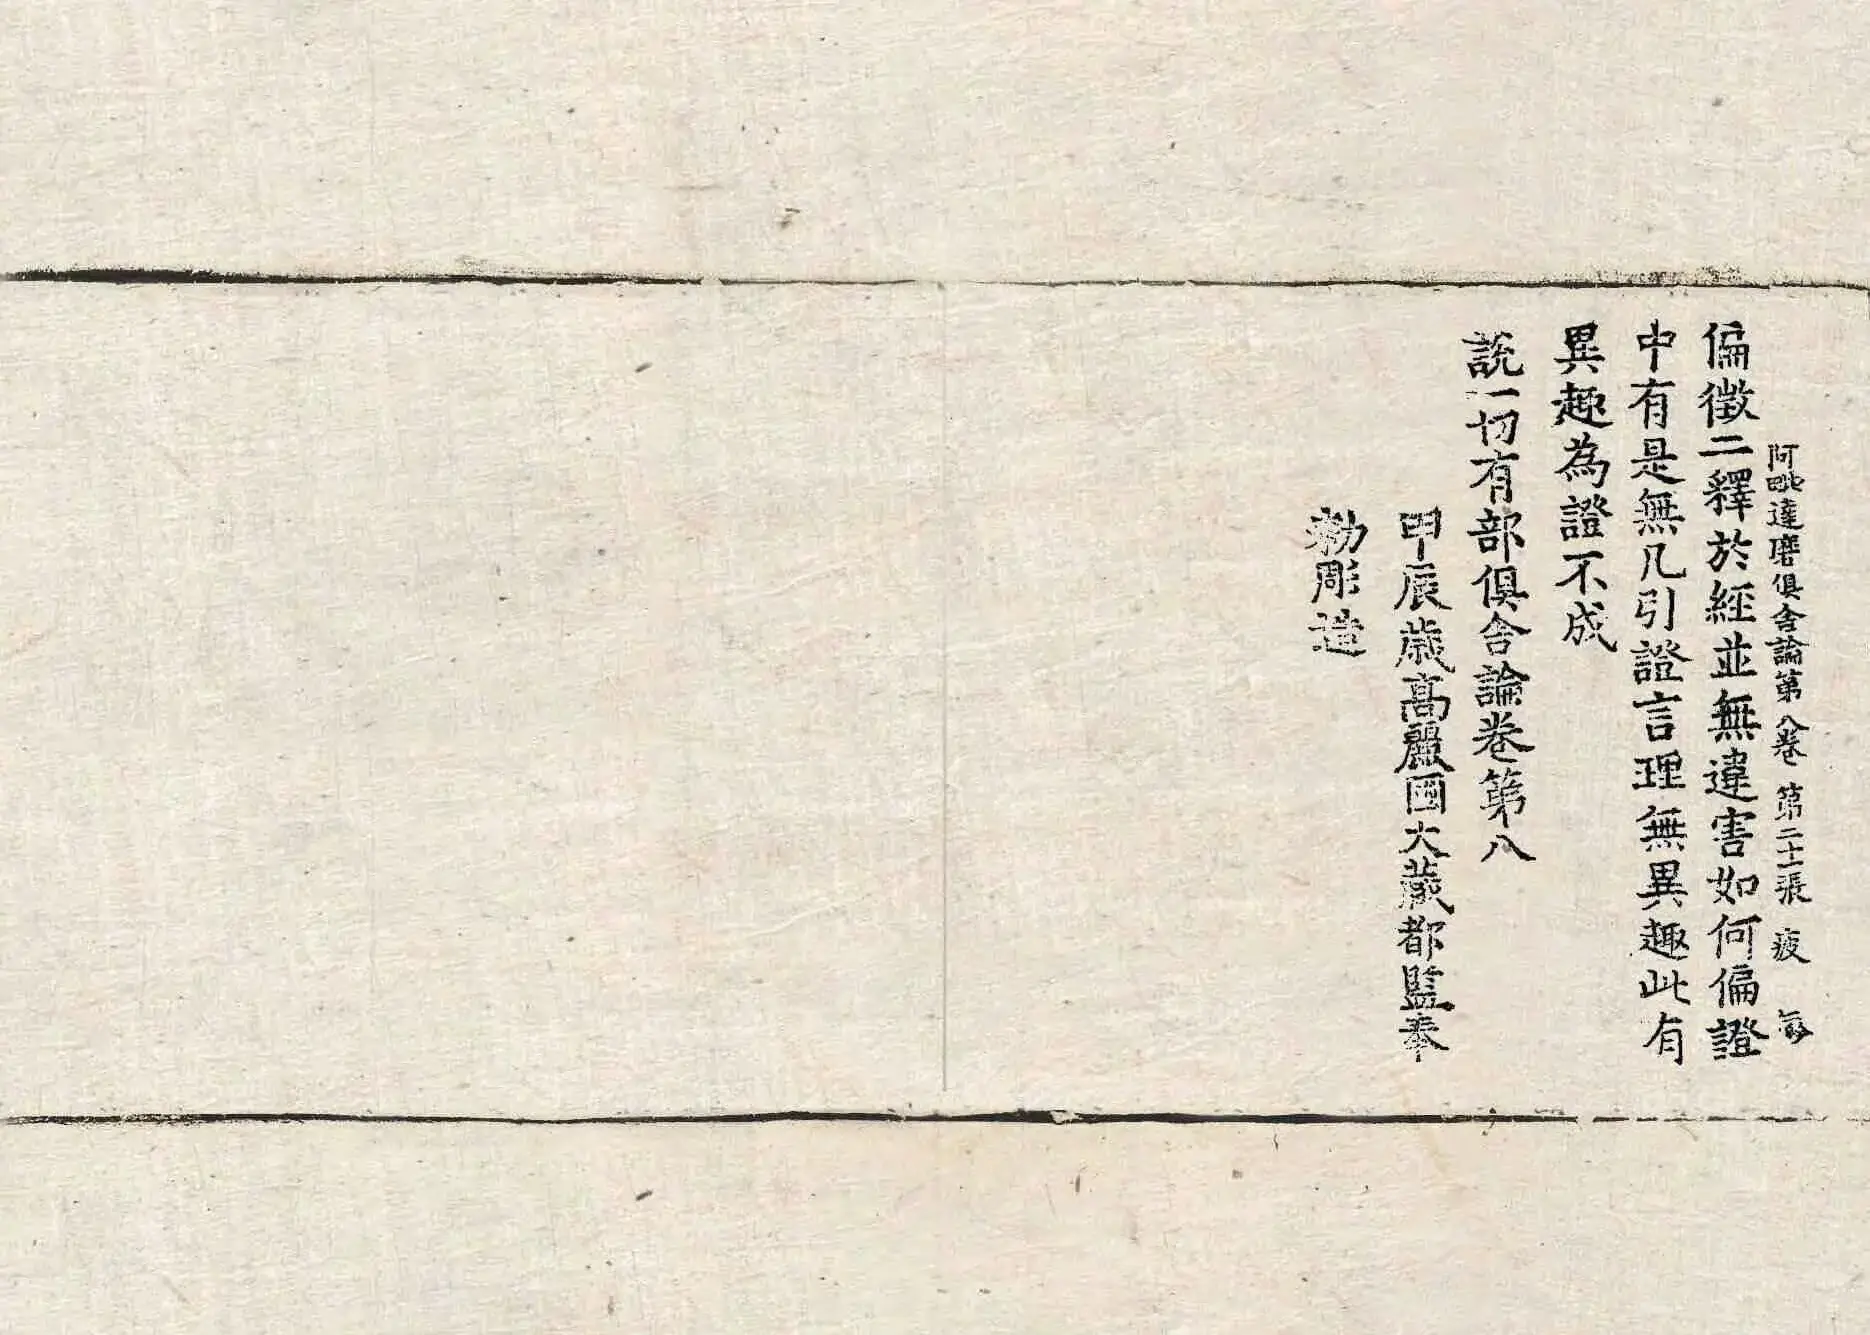 阿毗達磨俱舍論第八卷 第二十一張 疲
偏徵二釋於經並無違害如何偏證
中有是無凡引證言理無異趣此有
異趣為證不成
說一切有部俱舍論卷第八
甲辰歲高麗國大藏都監奉
勅彫造